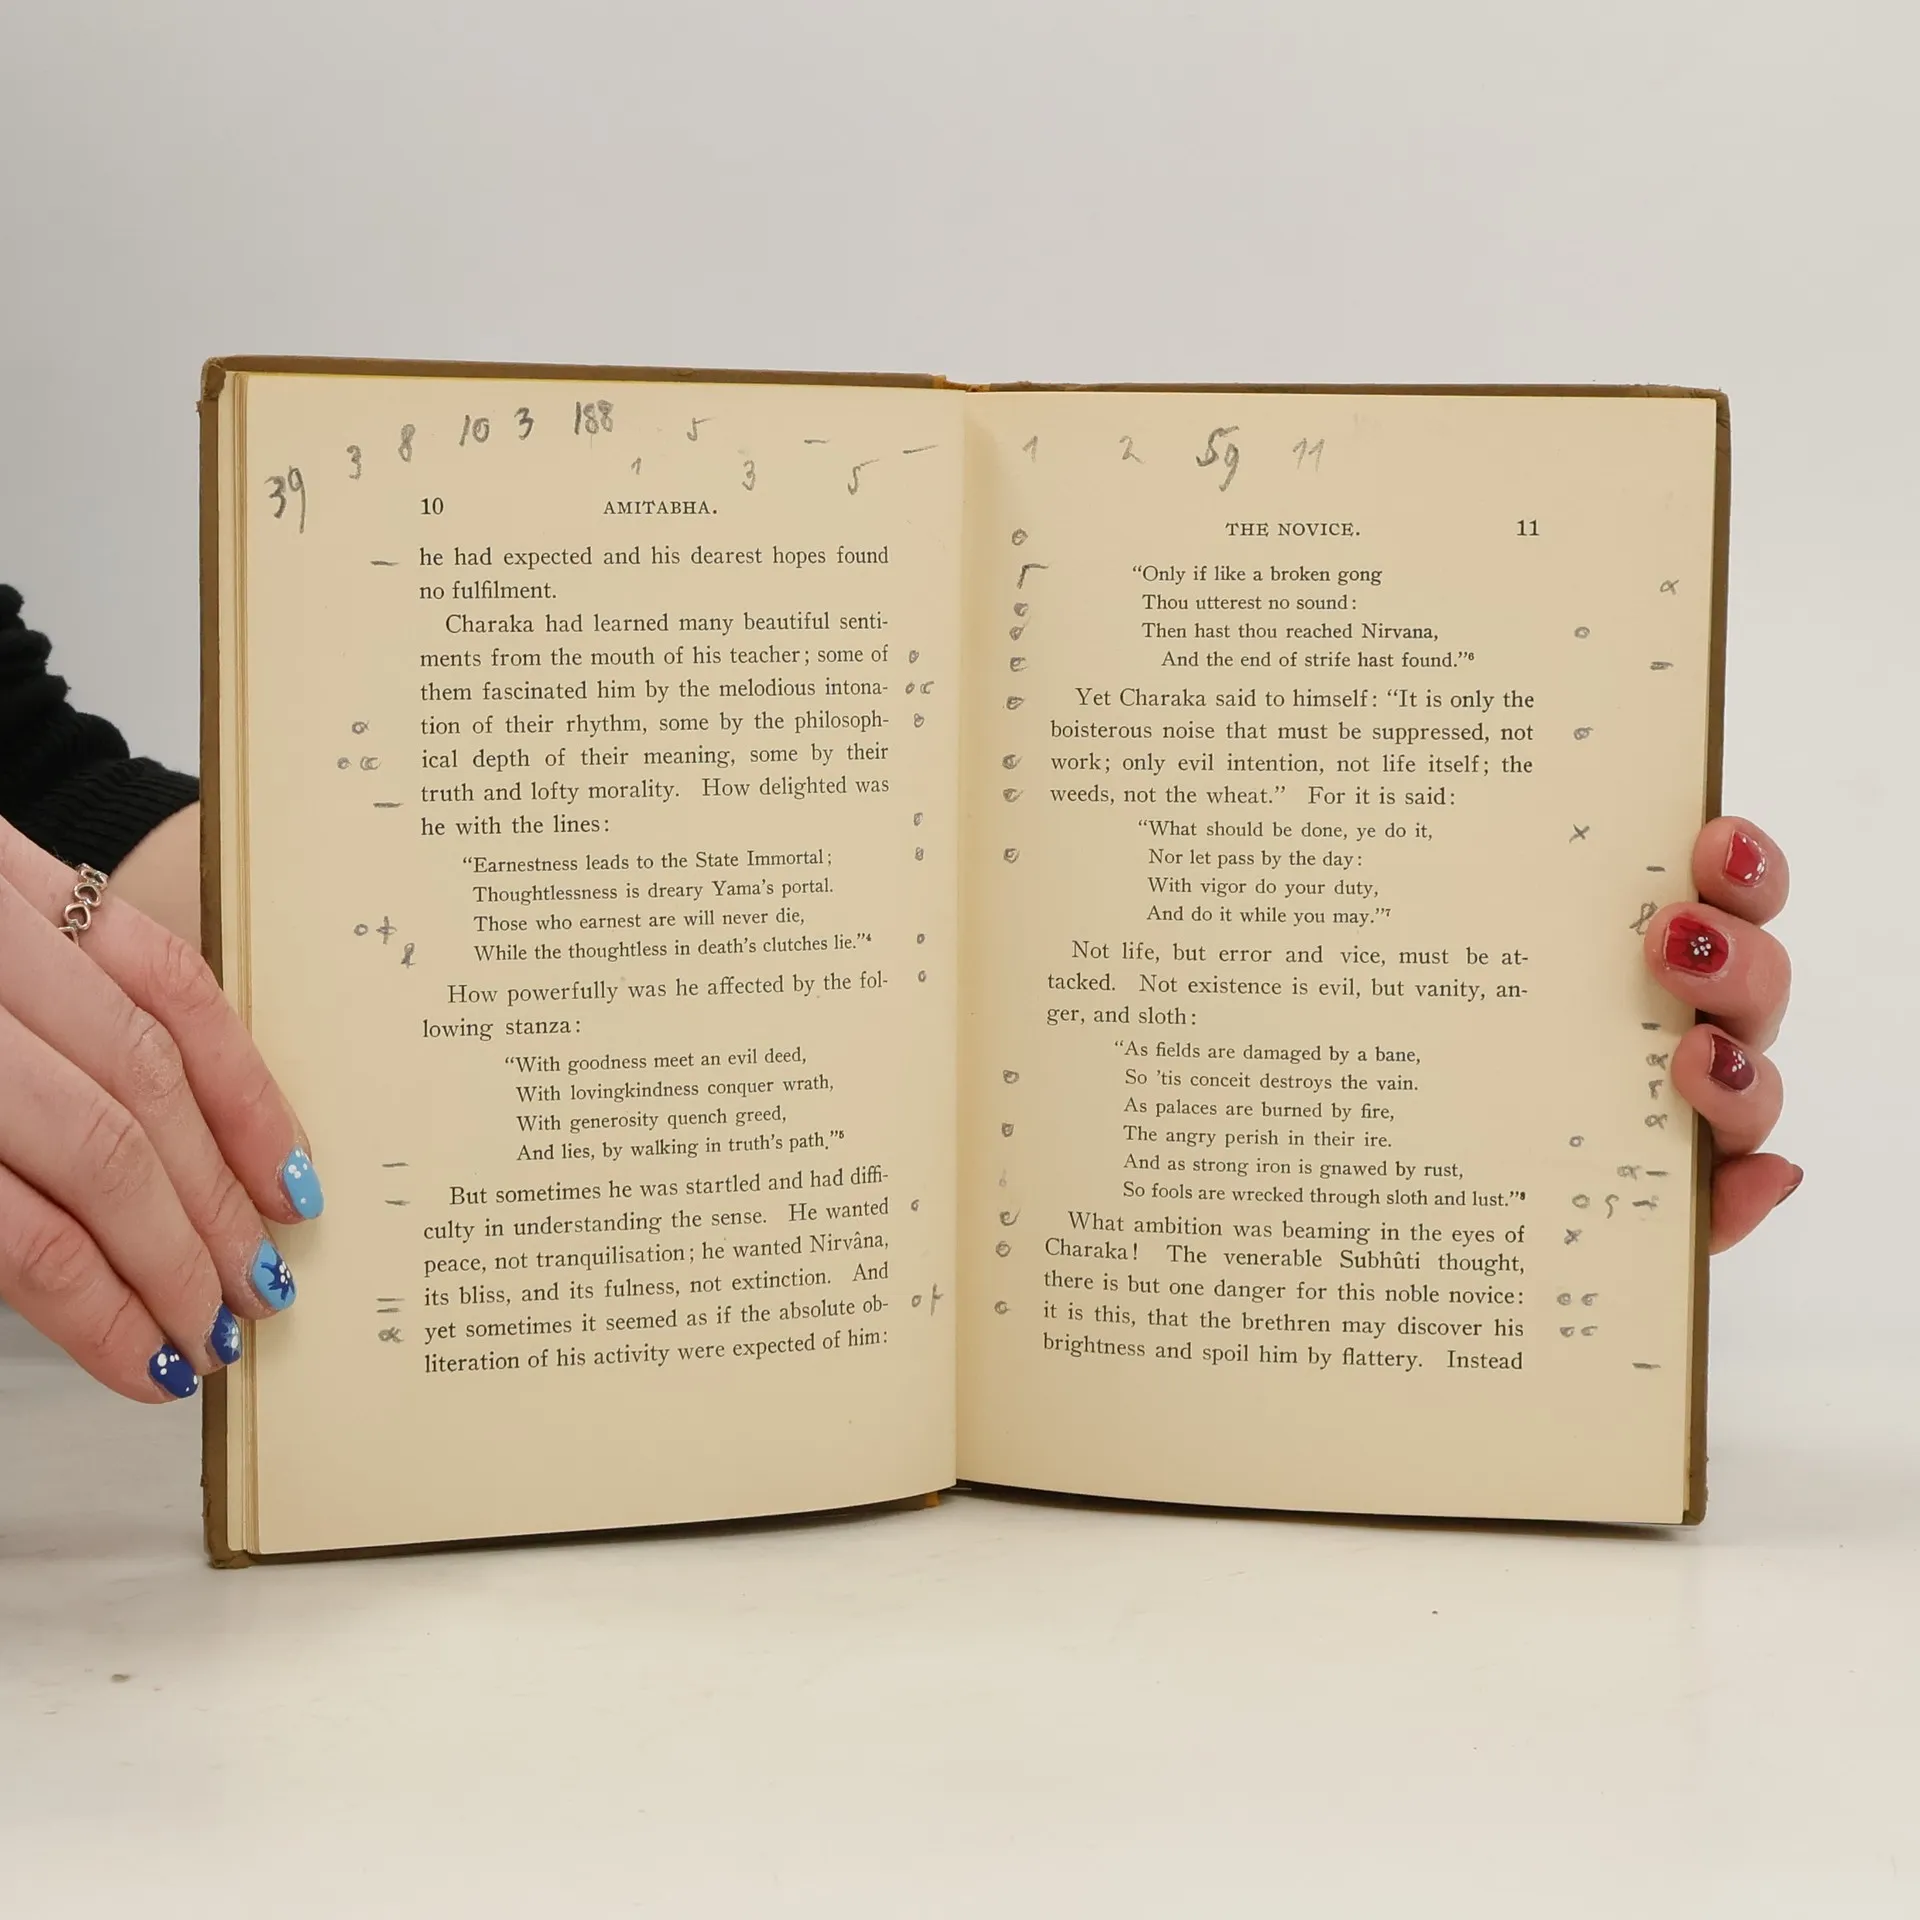 39 3 8 10 3 188 5 —
1 3 5 —
10 AMITABHA.
he had expected and his dearest hopes found
no fulfilment.
Charaka had learned many beautiful senti-
ments from the mouth of his teacher; some of
them fascinated him by the melodious intona-
tion of their rhythm, some by the philosoph-
ical depth of their meaning, some by their
truth and lofty morality. How delighted was
he with the lines:
“Earnestness leads to the State Immortal;
Thoughtlessness is dreary Yama’s portal.
Those who earnest are will never die,
While the thoughtless in death’s clutches lie.”⁴
How powerfully was he affected by the fol-
lowing stanza:
“With goodness meet an evil deed,
With lovingkindness conquer wrath,
With generosity quench greed,
And lies, by walking in truth’s path.”⁵
But sometimes he was startled and had diffi-
culty in understanding the sense. He wanted
peace, not tranquilisation; he wanted Nirvâna,
its bliss, and its fulness, not extinction. And
yet sometimes it seemed as if the absolute ob-
literation of his activity were expected of him:
1 2 59 11
THE NOVICE. 11
“Only if like a broken gong
Thou utterest no sound:
Then hast thou reached Nirvana,
And the end of strife hast found.”⁶
Yet Charaka said to himself: “It is only the
boisterous noise that must be suppressed, not
work; only evil intention, not life itself; the
weeds, not the wheat.” For it is said:
“What should be done, ye do it,
Nor let pass by the day:
With vigor do your duty,
And do it while you may.”⁷
Not life, but error and vice, must be at-
tacked. Not existence is evil, but vanity, an-
ger, and sloth:
“As fields are damaged by a bane,
So ’tis conceit destroys the vain.
As palaces are burned by fire,
The angry perish in their ire.
And as strong iron is gnawed by rust,
So fools are wrecked through sloth and lust.”⁸
What ambition was beaming in the eyes of
Charaka! The venerable Subhûti thought,
there is but one danger for this noble novice:
it is this, that the brethren may discover his
brightness and spoil him by flattery. Instead